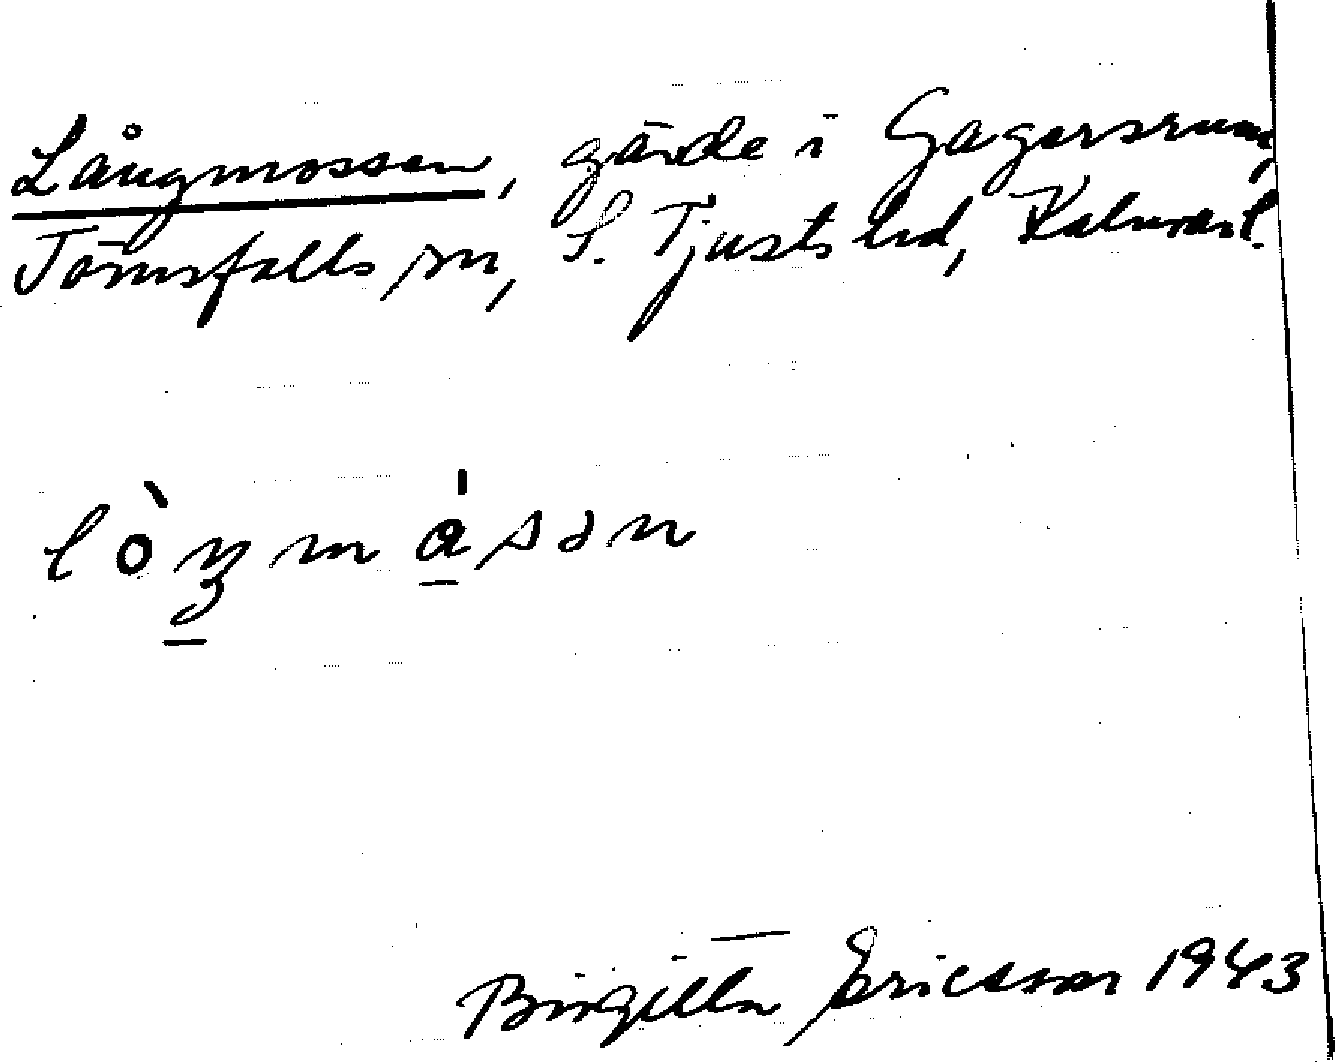 Långmossen, gärde i Gagersrum,
Törnsfalls sn, S. Tjusts hd, Kalmar l.
lòŋmásən
Birgitta Ericsson 1943